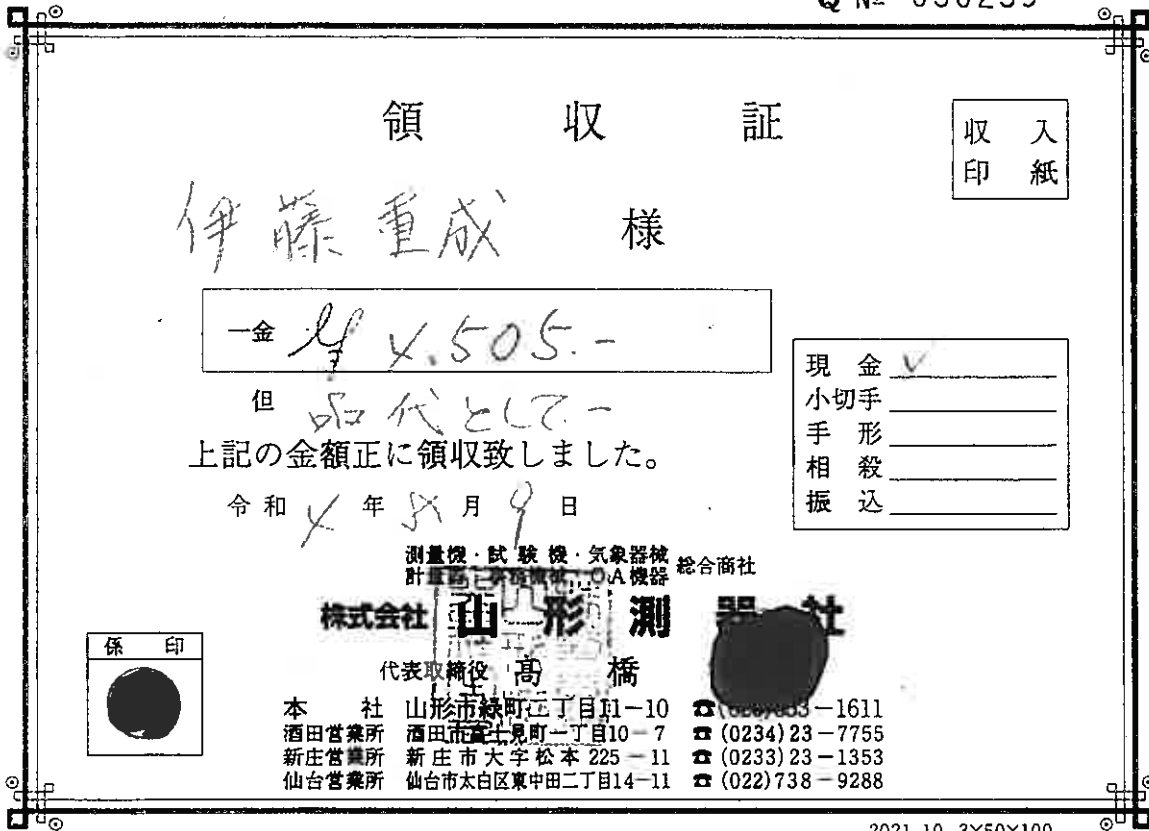 領収証
収入
印紙
伊藤重成 様
一金 ¥4,505.-
但 品代として-
上記の金額正に領収致しました。
現金 ✓
小切手
手形
相殺
振込
令和 4 年 月 9 日
測量機・試験機・気象器械
OA機器 総合商社
株式会社 山形測器社
代表取締役 高橋
係印
本社 山形市緑町二丁目11-10 -1611
酒田営業所 酒田市富士見町一丁目10-7 ☎(0234)23-7755
新庄営業所 新庄市大字松本225-11 ☎(0233)23-1353
仙台営業所 仙台市太白区東中田二丁目14-11 ☎(022)738-9288
2021.10 3×50×100